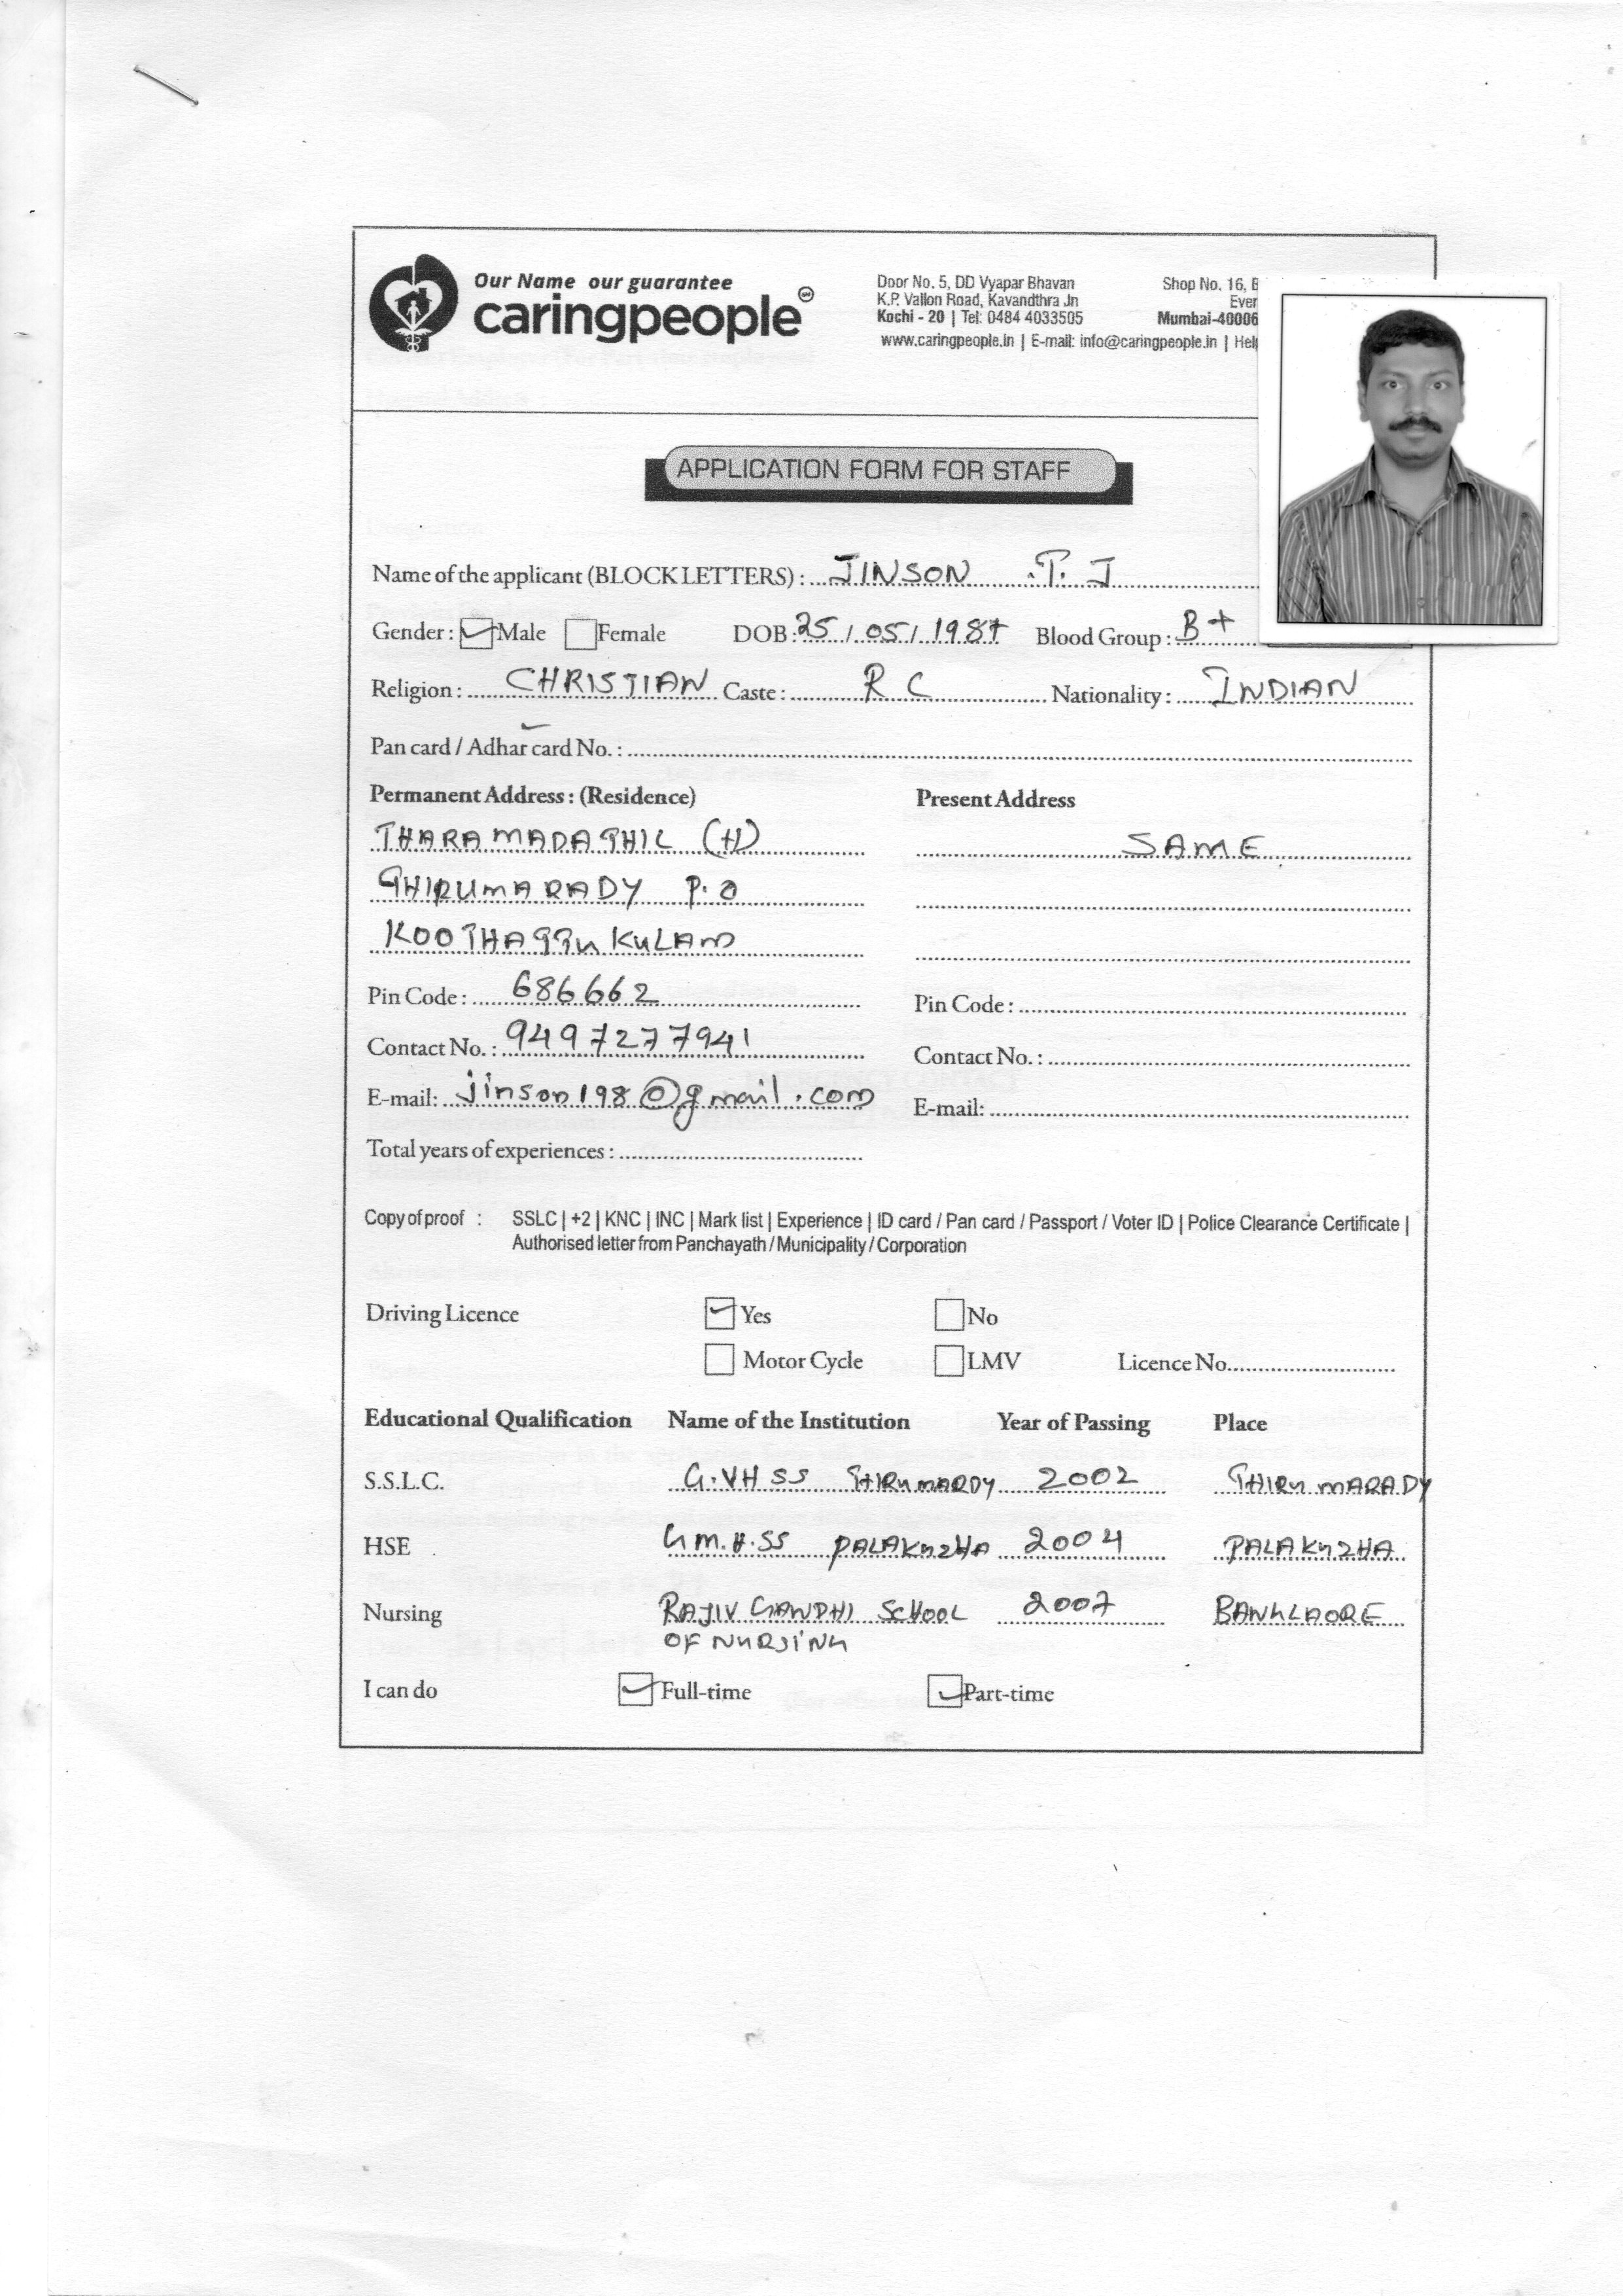 Our Name our guarantee
caringpeople
Door No. 5, DD Vyapar Bhavan
K.P. Vallon Road, Kavandthra Jn
Kochi - 20 | Tel: 0484 4033505
Shop No. 16,
Mumbai-40006
www.caringpeople.in | E-mail: info@caringpeople.in |
APPLICATION FORM FOR STAFF
Name of the applicant (BLOCK LETTERS) : JINSON .T. J
Gender : Male Female DOB: 25 / 05 / 1987 Blood Group : B+
Religion : CHRISTIAN Caste : R C Nationality : INDIAN
Pan card / Adhar card No. :
Permanent Address : (Residence) Present Address
THARAMADATHIL (H) SAME
THIRUMARADY P.O
KOOTHATTUKULAM
Pin Code : 686662 Pin Code :
Contact No. : 9497277941 Contact No. :
E-mail: jinson198@gmail.com E-mail:
Total years of experiences :
Copy of proof : SSLC | +2 | KNC | INC | Mark list | Experience | ID card / Pan card / Passport / Voter ID | Police Clearance Certificate |
Authorised letter from Panchayath / Municipality / Corporation
Driving Licence Yes No
Motor Cycle LMV Licence No.
Educational Qualification Name of the Institution Year of Passing Place
S.S.L.C. G.VHSS THIRUMARDY 2002 THIRUMARADY
HSE G.M.H.SS PALAKUZHA 2004 PALAKUZHA
Nursing RAJIV GANDHI SCHOOL 2007 BANGLAORE
OF NURSING
I can do Full-time Part-time